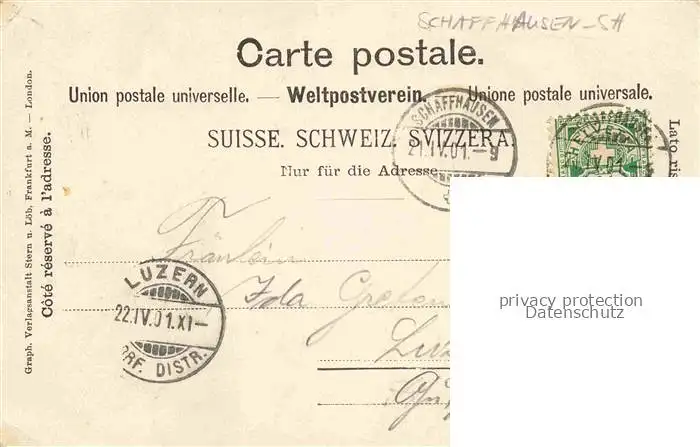 SCHAFFHAUSEN - SH
Carte postale.
Union postale universelle. — Weltpostverein. Unione postale universale.
SUISSE. SCHWEIZ. SVIZZERA.
Nur für die Adresse
SCHAFFHAUSEN
21.IV.01.–9
Graph. Verlagsanstalt Stern u. Löb, Frankfurt a. M. — London.
Côté réservé à l'adresse.
Lato ris
Fräulein
Ida
LUZERN
22.IV.01.XI–
BRF. DISTR.
privacy protection
Datenschutz